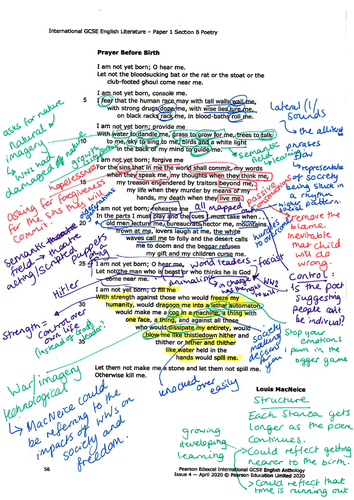 International GCSE English Literature – Paper 1 Section B Poetry
Prayer Before Birth
I am not yet born; O hear me.
Let not the bloodsucking bat or the rat or the stoat or the
club-footed ghoul come near me.
I am not yet born, console me.
5 I fear that the human race may with tall walls wall me,
with strong drugs dope me, with wise lies lure me,
on black racks rack me, in blood-baths roll me.
I am not yet born; provide me
With water to dandle me, grass to grow for me, trees to talk
10 to me, sky to sing to me, birds and a white light
in the back of my mind to guide me.
I am not yet born; forgive me
For the sins that in me the world shall commit, my words
when they speak me, my thoughts when they think me,
15 my treason engendered by traitors beyond me,
my life when they murder by means of my
hands, my death when they live me.
I am not yet born; rehearse me
In the parts I must play and the cues I must take when
20 old men lecture me, bureaucrats hector me, mountains
frown at me, lovers laugh at me, the white
waves call me to folly and the desert calls
me to doom and the beggar refuses
my gift and my children curse me.
25 I am not yet born; O hear me,
Let not the man who is beast or who thinks he is God
come near me.
I am not yet born; O fill me
With strength against those who would freeze my
30 humanity, would dragoon me into a lethal automaton,
would make me a cog in a machine, a thing with
one face, a thing, and against all those
who would dissipate my entirety, would
blow me like thistledown hither and
35 thither or hither and thither
like water held in the
hands would spill me.
Let them not make me a stone and let them not spill me.
Otherwise kill me.
Louis MacNeice
lateral (l)
sounds
the alliking
phrases
flow →
represents
of society
being stuck in
a rhythm
pattern.
asks for nature
natural
imagery
WW2 had
damaged nature
semantic
field of
growth
hopelessness
Asking for forgiveness
for the sins they will
commit.
passive
remove the
blame.
inevitable
that child
will do
wrong.
all mapped
out
Semantic
field → theatre
acting/scripted
puppets
world leaders - fascism
Animalistic
Hitler
WW2
Control:
Is the poet
suggesting
people can't
be individual?
Strength -
control over
own life
(instead of leader)
Stop your
emotions
pawn in the
bigger game
society
being
War/imagery
technological
→ MacNeice could
be referring to the
impacts of WWs on
society and
freedom.
knocked over
easily
growing
developing
learning
Structure
Each Stanza gets
longer as the poem
continues.
→ Could reflect getting
nearer to the birth.
→ Could reflect that
time is running out
56
Pearson Edexcel International GCSE English Anthology
Issue 4 — April 2020 © Pearson Education Limited 2020